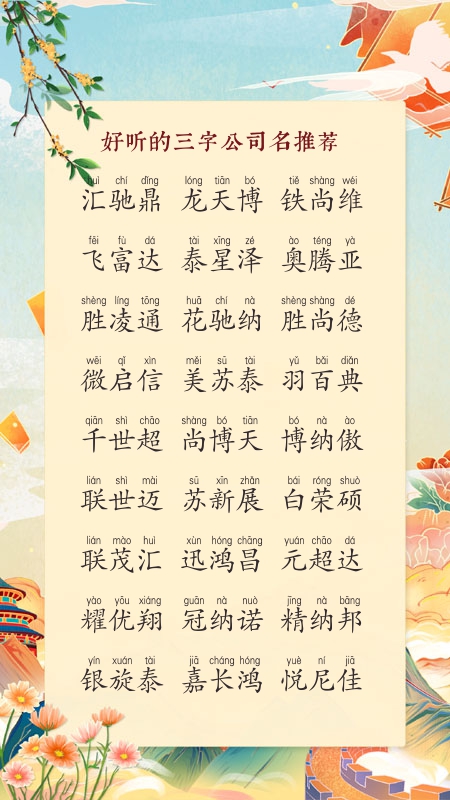 好听的三字公司名推荐
huì chí dǐng lóng tiān bó tiě shàng wéi
汇驰鼎 龙天博 铁尚维
fēi fù dá tài xīng zé ào téng yà
飞富达 泰星泽 奥腾亚
shèng líng tōng huā chí nà shèng shàng dé
胜凌通 花驰纳 胜尚德
wēi qǐ xìn měi sū tài yǔ bǎi diǎn
微启信 美苏泰 羽百典
qiān shì chāo shàng bó tiān bó nà ào
千世超 尚博天 博纳傲
lián shì mài sū xīn zhǎn bái róng shuò
联世迈 苏新展 白荣硕
lián mào huì xùn hóng chāng yuán chāo dá
联茂汇 迅鸿昌 元超达
yào yōu xiáng guān nà nuò jīng nà bāng
耀优翔 冠纳诺 精纳邦
yín xuán tài jiā cháng hóng yuè ní jiā
银旋泰 嘉长鸿 悦尼佳